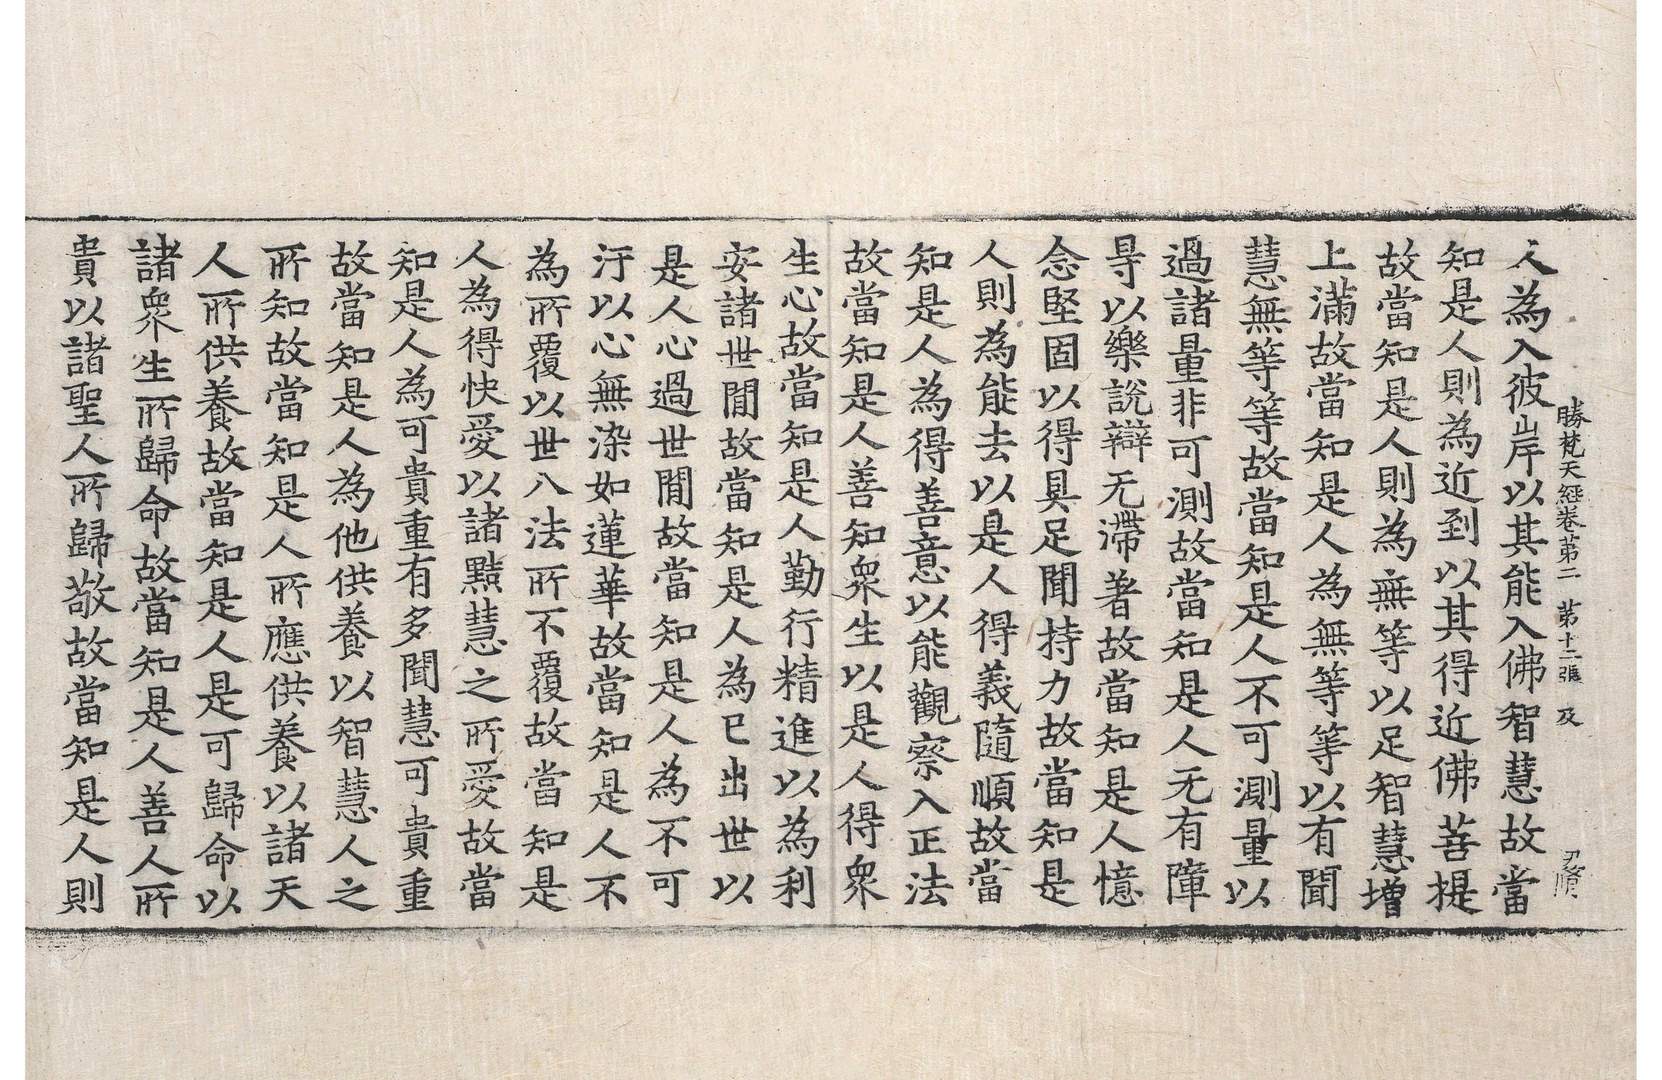 勝梵天經卷第二 第十二張 及
人為入彼岸以其能入佛智慧故當
知是人則為近到以其得近佛菩提
故當知是人則為無等以足智慧增
上滿故當知是人為無等等以有聞
慧無等等故當知是人不可測量以
過諸量非可測故當知是人无有障
㝵以樂說辯无滯著故當知是人憶
念堅固以得具足聞持力故當知是
人則為能去以是人得義隨順故當
知是人為得善意以能觀察入正法
故當知是人善知衆生以是人得衆
生心故當知是人勤行精進以為利
安諸世閒故當知是人為已出世以
是人心過世閒故當知是人為不可
汙以心無染如蓮華故當知是人不
為所覆以世八法所不覆故當知是
人為得快愛以諸黠慧之所愛故當
知是人為可貴重有多聞慧可貴重
故當知是人為他供養以智慧人之
所知故當知是人所應供養以諸天
人所供養故當知是人是可歸命以
諸衆生所歸命故當知是人善人所
貴以諸聖人所歸敬故當知是人則